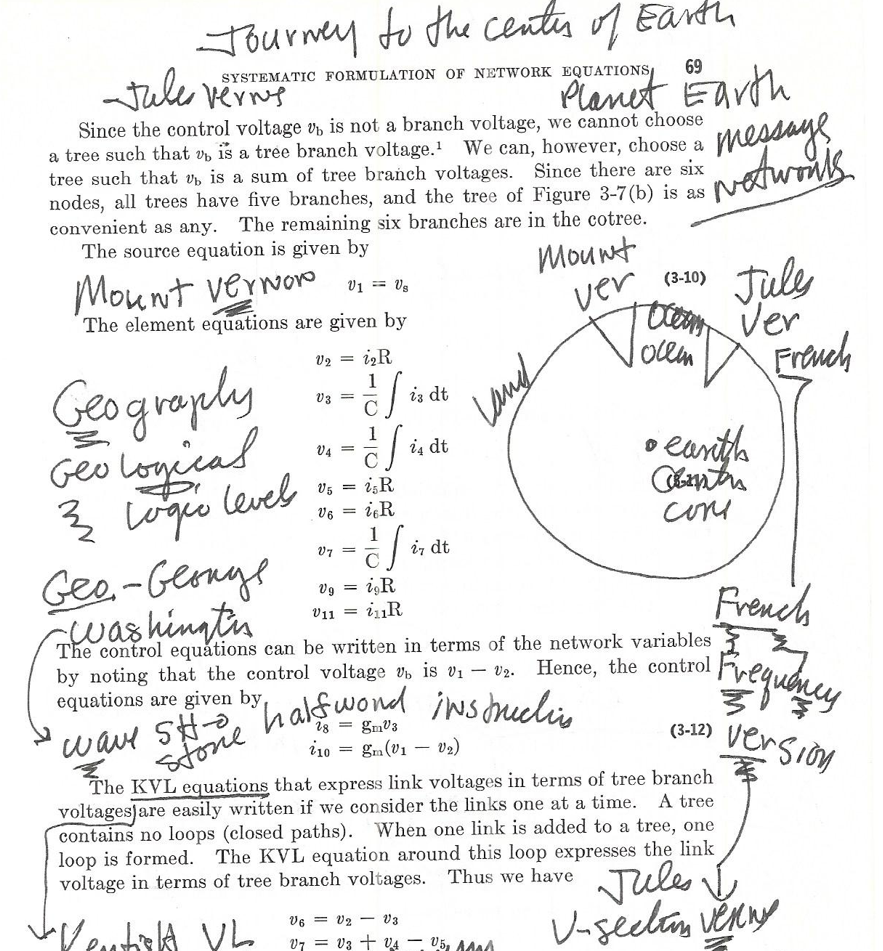 Journey to the center of Earth
SYSTEMATIC FORMULATION OF NETWORK EQUATIONS 69
Jules verns
Planet Earth
message
networks
Since the control voltage v_b is not a branch voltage, we cannot choose
a tree such that v_b is a tree branch voltage.¹ We can, however, choose a
tree such that v_b is a sum of tree branch voltages. Since there are six
nodes, all trees have five branches, and the tree of Figure 3-7(b) is as
convenient as any. The remaining six branches are in the cotree.
The source equation is given by
Mount vernon
v₁ = vₛ
(3-10)
Mount
ver
Jules
Ver
French
The element equations are given by
ocean
Land
v₂ = i₂R
v₃ = 1/C ∫ i₃ dt
v₄ = 1/C ∫ i₄ dt
v₅ = i₅R
v₆ = i₆R
v₇ = 1/C ∫ i₇ dt
v₉ = i₉R
v₁₁ = i₁₁R
Geography
Geological
Logic levels
Geo - George
Washington
earth
(3-11)
core
French
Frequency
version
The control equations can be written in terms of the network variables
by noting that the control voltage v_b is v₁ − v₂. Hence, the control
equations are given by
wave SH
stone
halfword
i₈ = gₘv₃
i₁₀ = gₘ(v₁ − v₂)
(3-12)
The KVL equations that express link voltages in terms of tree branch
voltages are easily written if we consider the links one at a time. A tree
contains no loops (closed paths). When one link is added to a tree, one
loop is formed. The KVL equation around this loop expresses the link
voltage in terms of tree branch voltages. Thus we have
Jules
verns
v₆ = v₂ − v₃
v₇ = v₃ + v₄ − v₅